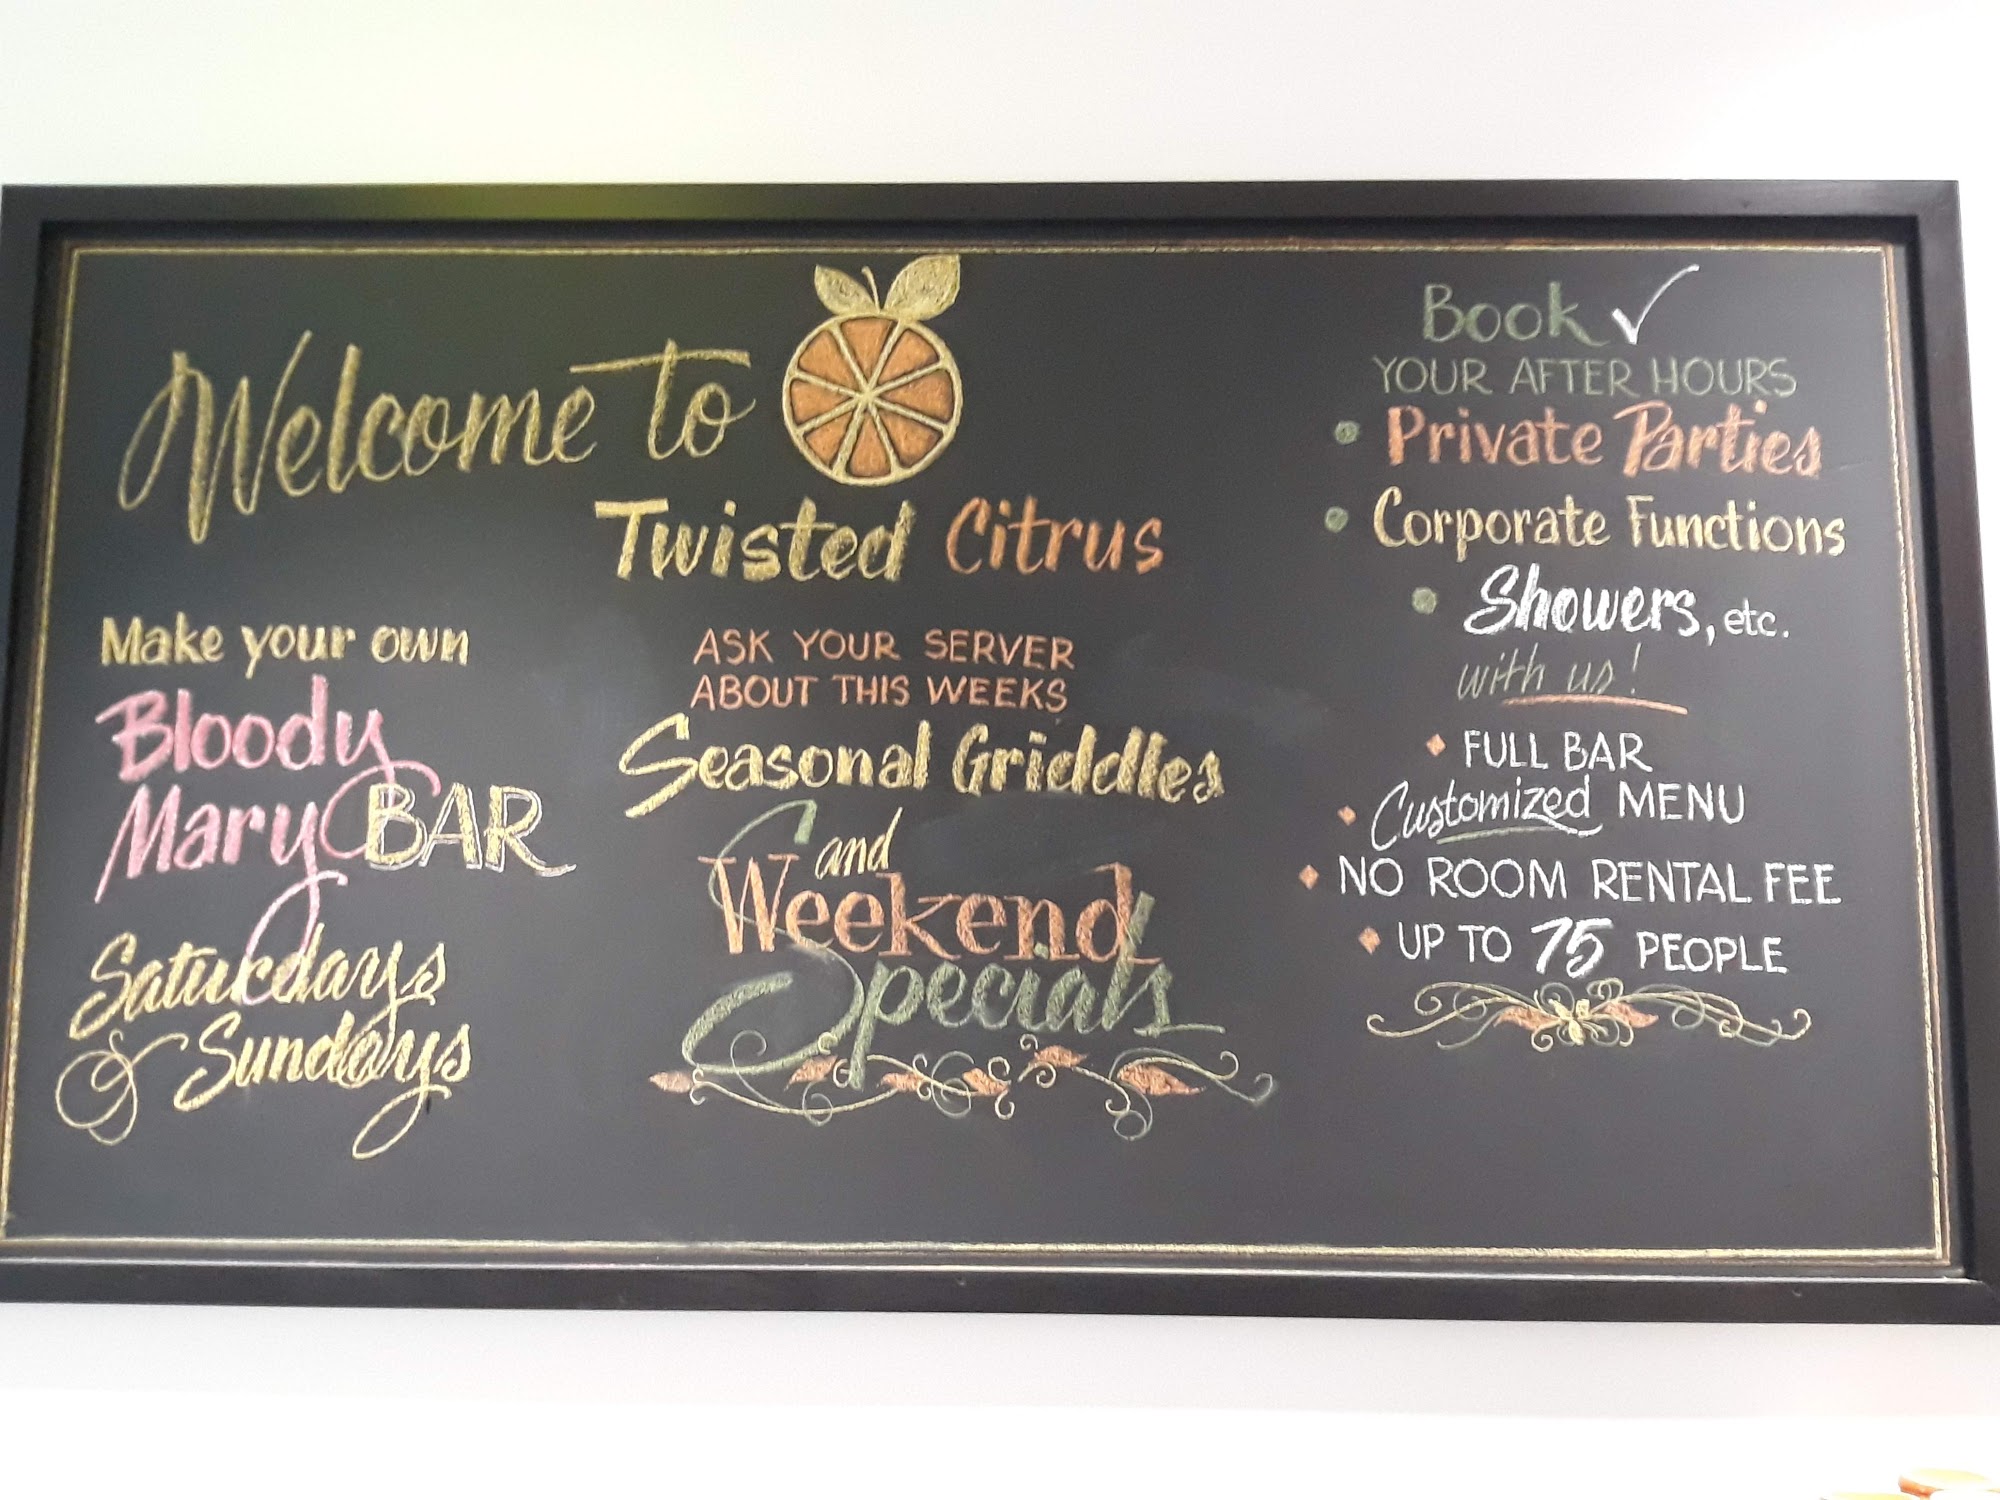 Welcome to
Twisted Citrus
Make your own
Bloody
Mary BAR
Saturdays
& Sundays
ASK YOUR SERVER
ABOUT THIS WEEKS
Seasonal Griddles
and
Weekend
Specials
Book ✓
YOUR AFTER HOURS
• Private Parties
• Corporate Functions
• Showers, etc.
with us!
♦ FULL BAR
♦ Customized MENU
♦ NO ROOM RENTAL FEE
♦ UP TO 75 PEOPLE